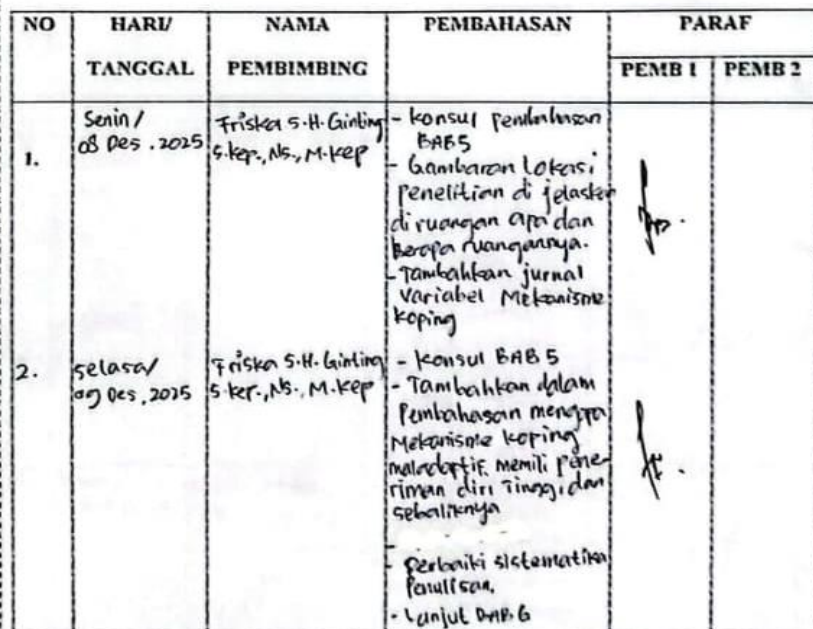 NO HARI/ NAMA PEMBAHASAN PARAF
TANGGAL PEMBIMBING PEMB 1 PEMB 2
1.
Senin/
08 Des . 2025
Friska S.H. Ginting
S.kep., Ns., M.kep
- konsul pembahasan
BAB 5
- Gambaran Lokasi
Penelitian di jelaskan
di ruangan apa dan
Berapa ruangannya.
- Tambahkan jurnal
Variabel Mekanisme
koping
2.
selasa/
09 Des . 2025
Friska S.H. Ginting
S.kep., Ns., M.kep
- Konsul BAB 5
- Tambahkan dalam
Pembahasan mengapa
Mekanisme koping
maladaptif memili pene-
riman diri Tinggi dan
sebaliknya
-
- perbaiki sistematika
Penulisan.
- Lanjut BAB 6